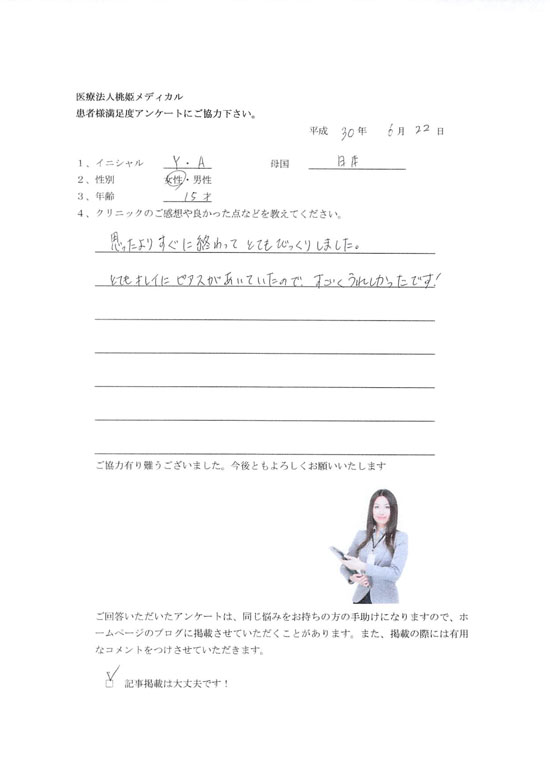 医療法人桃姫メディカル
患者様満足度アンケートにご協力下さい。
平成 30年 6月 22日
1、イニシャル Y・A 母国 日本
2、性別 女性・男性
3、年齢 15才
4、クリニックのご感想や良かった点などを教えてください。
思ったよりすぐに終わって とてもびっくりしました。
とてもキレイに ピアスがあいていたので、すごくうれしかったです!
ご協力有り難うございました。今後ともよろしくお願いいたします
ご回答いただいたアンケートは、同じ悩みをお持ちの方の手助けになりますので、ホ
ームページのブログに掲載させていただくことがあります。また、掲載の際には有用
なコメントをつけさせていただきます。
☑ 記事掲載は大丈夫です！